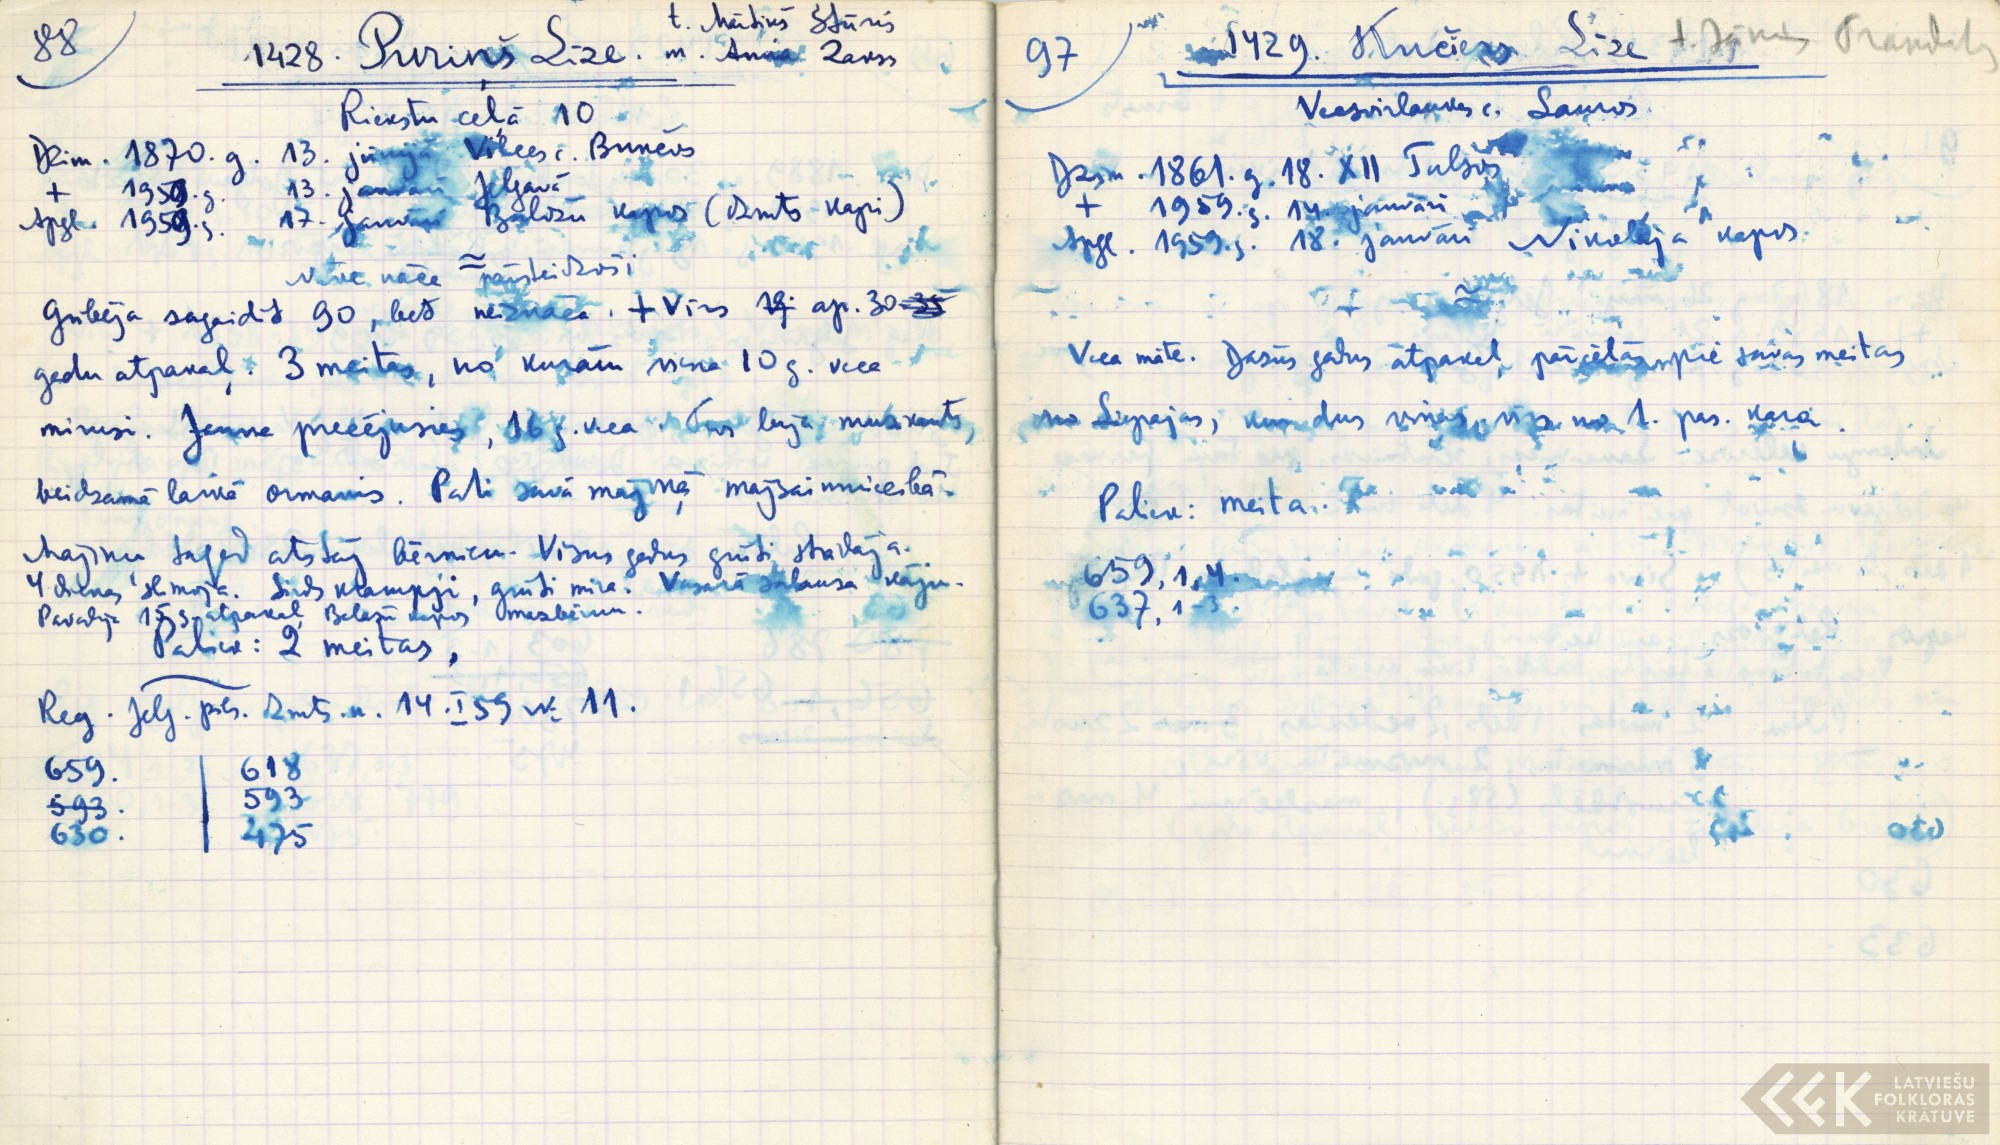 88
1428. Puriņš Līze.
t. Mārtiņš Štūris
m. Anna Zakss
Riekstu ceļā 10
Dzim. 1870. g. 13. jūnijā Vilces c. Bunčos
+ 1959. g. 13. janvārī Jelgavā
Apgl. 1959. g. 17. janvārī Baložu kapos (Dzmts kapi)
≈
Nāve nāca pārsteidzoši
Gribēja sagaidīt 90, bet neiznāca. + Vīrs ap. 30
gadu atpakaļ. 3 meitas, no kurām viena 10 g. veca
mirusi. Jauna precējusies, 16 g. veca. Tēvs bija muzikants,
beidzamā laikā ormanis. Pati savā mājiņā mājsaimniecībā.
Mājiņu tagad atstāj bērniem. Visus gadus grūti strādāja.
4 dienas slimoja. Sirds klampji, grūti mira. Vasarā salauza kāju.
Pavadīja 15 g. atpakaļ Baložu kapos mazbērnu.
Paliek: 2 meitas,
Reg. Jelg. pils. Dzmts. n. 14. I 59 № 11.
659. | 618
593. | 593
630. | 475
97
1429. Kučiers Līze t. Jānis
Vecsvirlaukas c. Lauros.
Dzim. 1861. g. 18. XII Talsos
+ 1959. g. 14. janvārī
Apgl. 1959. g. 18. janvārī Nikolaja kapos.
+ ≈
Veca māte. Dažus gadus atpakaļ pārcēlās pie savas meitas
no Liepājas, kur dus viņas vīrs no 1. pas. kara.
Paliek: meita.
659, 1, 4.
637, 1-3.
LATVIEŠU
FOLKLORAS
KRĀTUVE